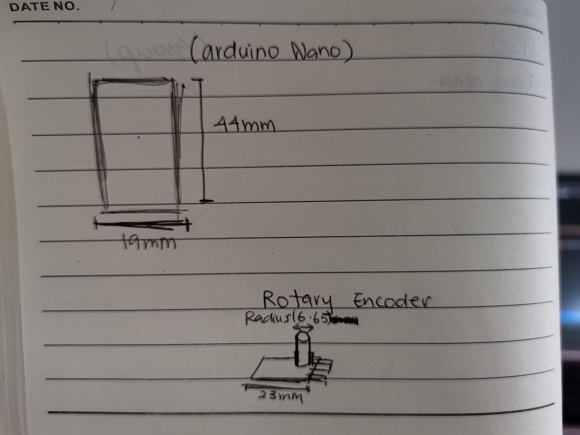 DATE NO. /
(arduino Nano)
44mm
19mm
Rotary Encoder
Radius(6.65)
23mm